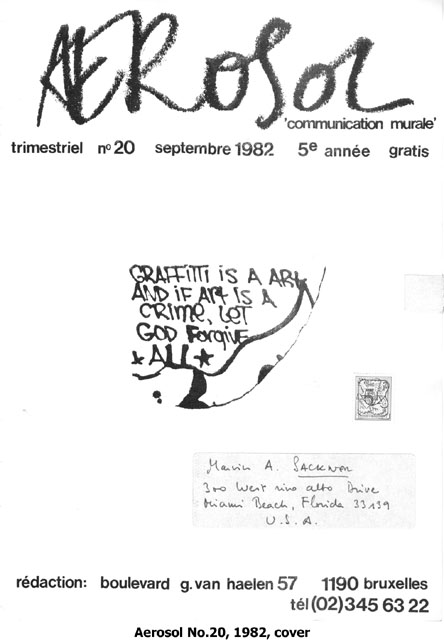 AEROSOL
'communication murale'
trimestriel n° 20 septembre 1982 5e année gratis
GRAFFiTTi iS A ART
AND iF Art iS A
CRiMe, LET
GOD Forgive
★ ALL ★
5F
Marvin A. SACKNER
300 West rivo alto Drive
Miami Beach, Florida 33139
U.S.A.
rédaction: boulevard g.van haelen 57 1190 bruxelles
tél (02) 345 63 22
Aerosol No.20, 1982, cover